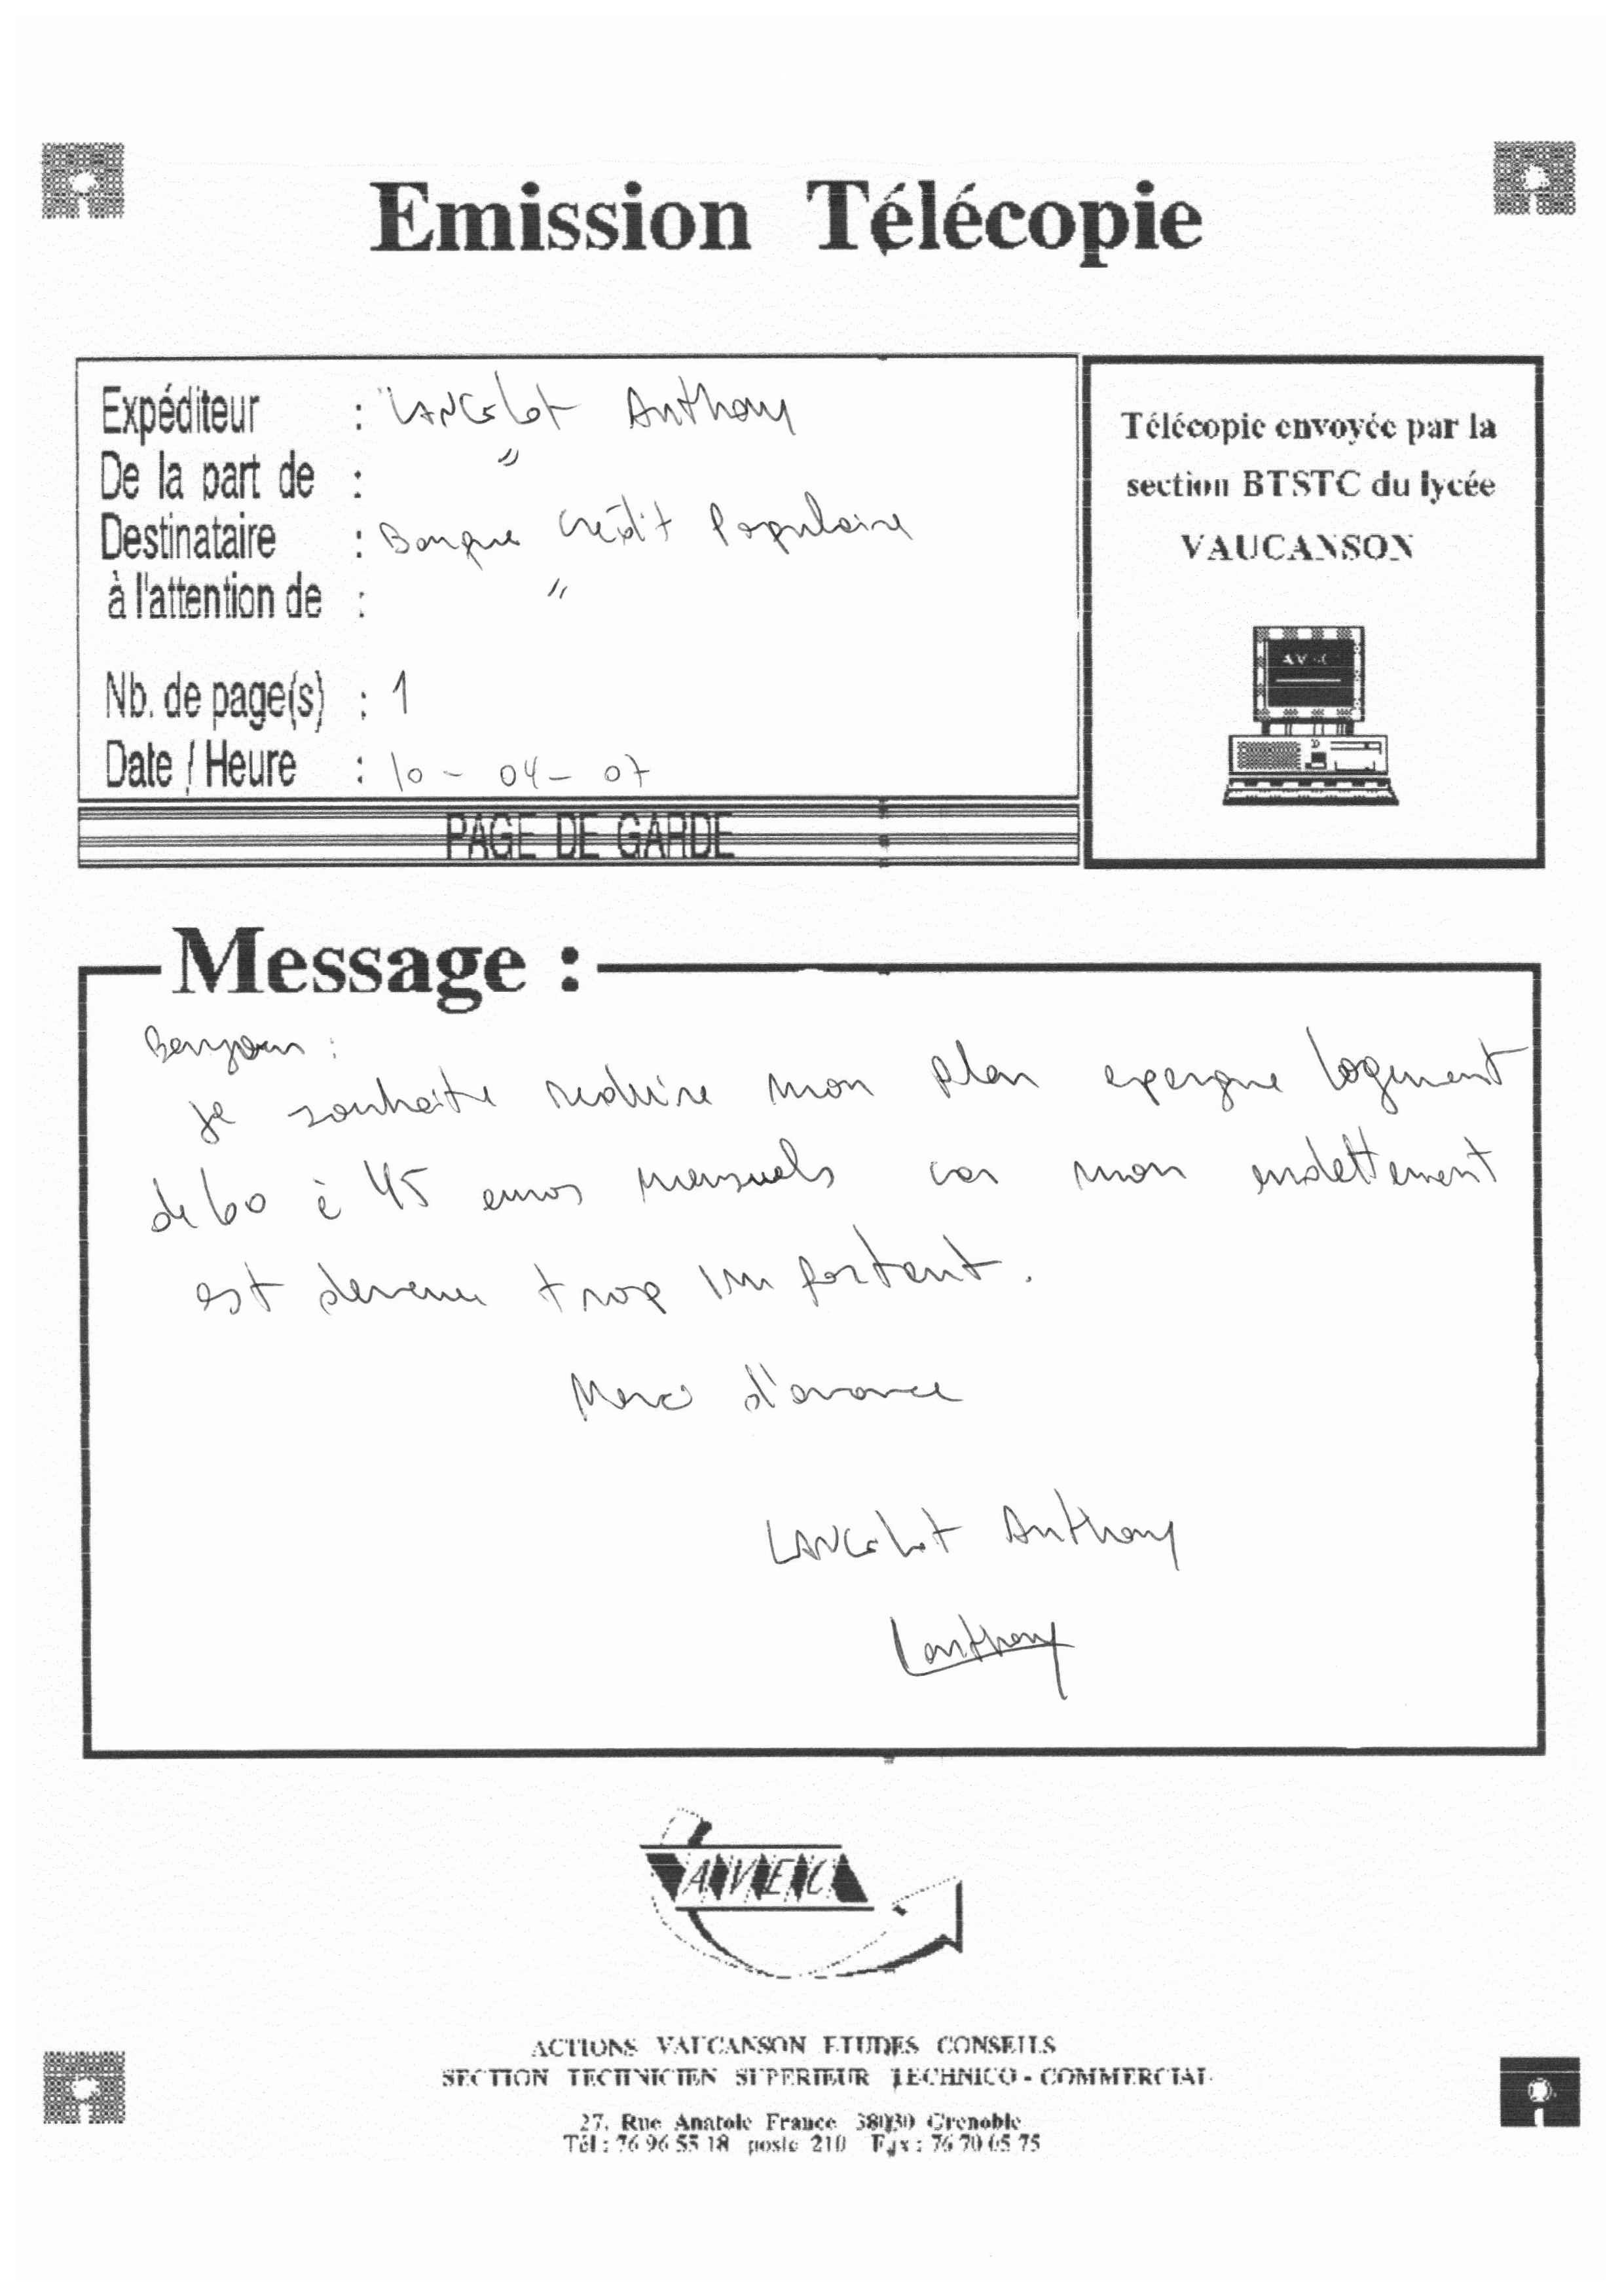 Emission Télécopie
Expéditeur : LANCelot Anthony
De la part de : "
Destinataire : Banque Crédit Populaire
à l'attention de : "
Nb. de page(s) : 1
Date / Heure : 10 - 04 - 07
PAGE DE GARDE
Télécopie envoyée par la
section BTSTC du lycée
VAUCANSON
Message :
Bonjour :
je souhaite reduire mon plan epargne logement
de 60 à 45 euros mensuels car mon endettement
est devenu trop important.
Merci d'avance
LANCelot Anthony
Lanthony
AVEC
ACTIONS VAUCANSON ETUDES CONSEILS
SECTION TECHNICIEN SUPERIEUR TECHNICO - COMMERCIAL
27, Rue Anatole France 38030 Grenoble
Tél : 76 96 55 18 poste 210 Fax : 76 70 05 75